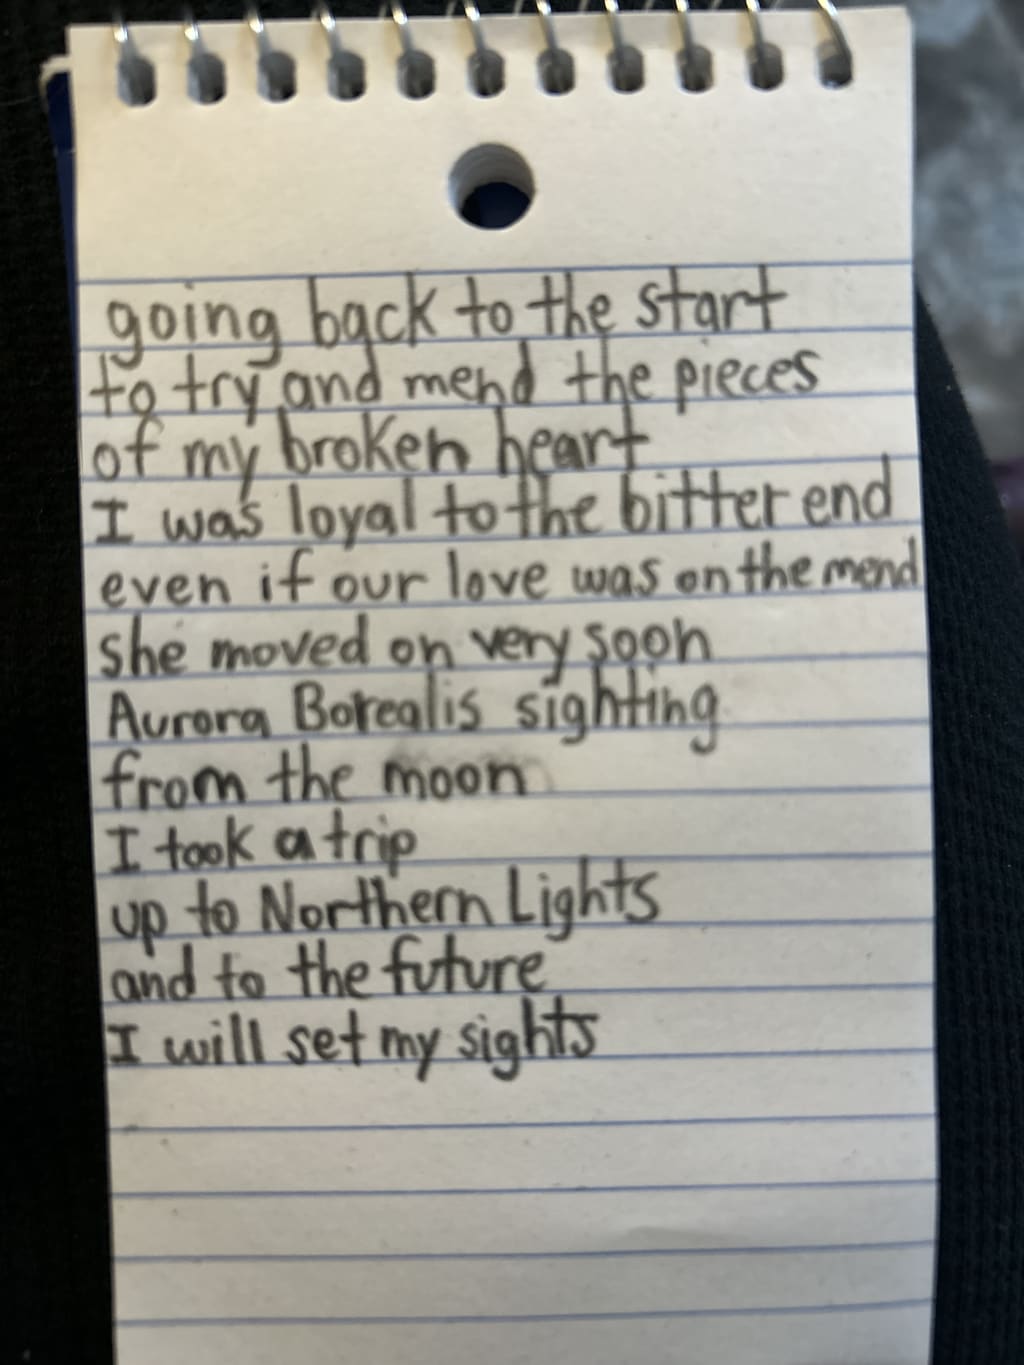 going back to the start
to try and mend the pieces
of my broken heart
I was loyal to the bitter end
even if our love was on the mend
she moved on very soon
Aurora Borealis sighting
from the moon
I took a trip
up to Northern Lights
and to the future
I will set my sights